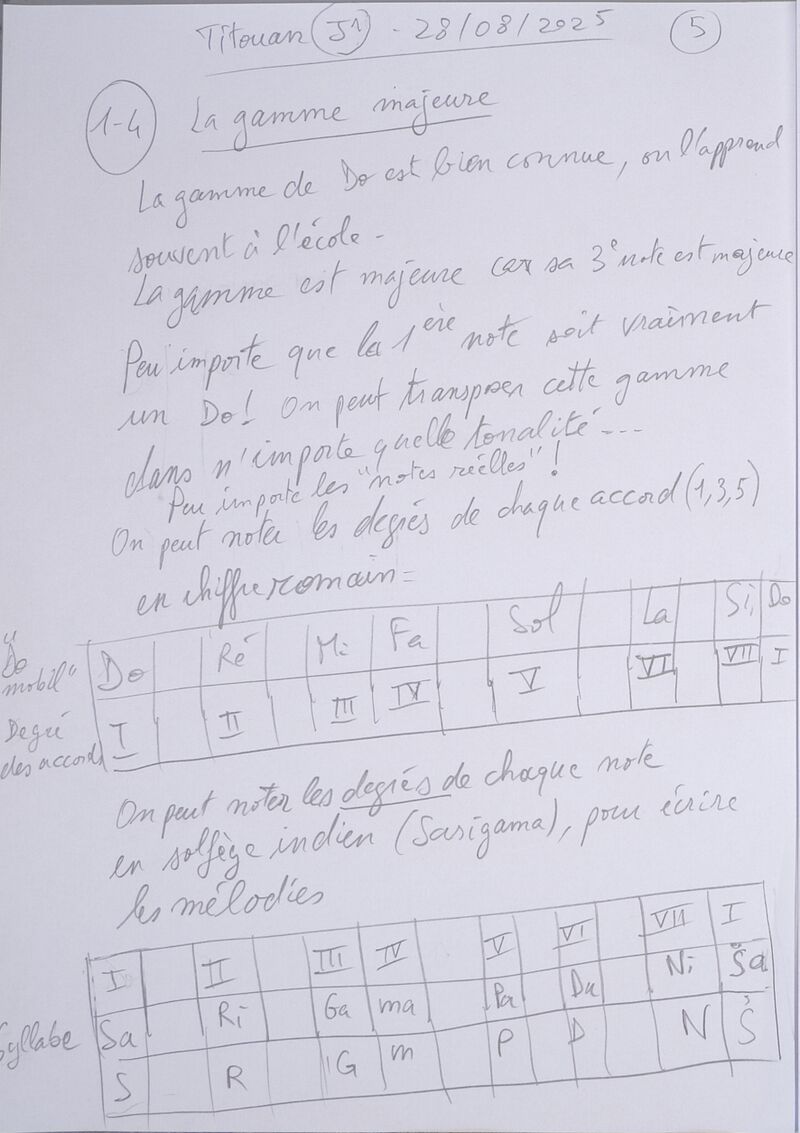 Titouan J1 - 28/08/2025 5
1-4 La gamme majeure
La gamme de Do est bien connue, on l'apprend
souvent à l'école -
La gamme est majeure car sa 3e note est majeure
Peu importe que la 1ère note soit vraiment
un Do! On peut transposer cette gamme
dans n'importe quelle tonalité...
Peu importe les "notes réelles" !
On peut noter les degrés de chaque accord (1,3,5)
en chiffre romain =
"Do mobil" Do Ré Mi Fa Sol La Si Do
Degré des accords I II III IV V VI VII I
On peut noter les degrés de chaque note
en solfège indien (Sarigama), pour écrire
les mélodies
I II III IV V VI VII I
Syllabe Sa Ri Ga ma Pa Da Ni Ṡa
S R G m P D N Ṡ